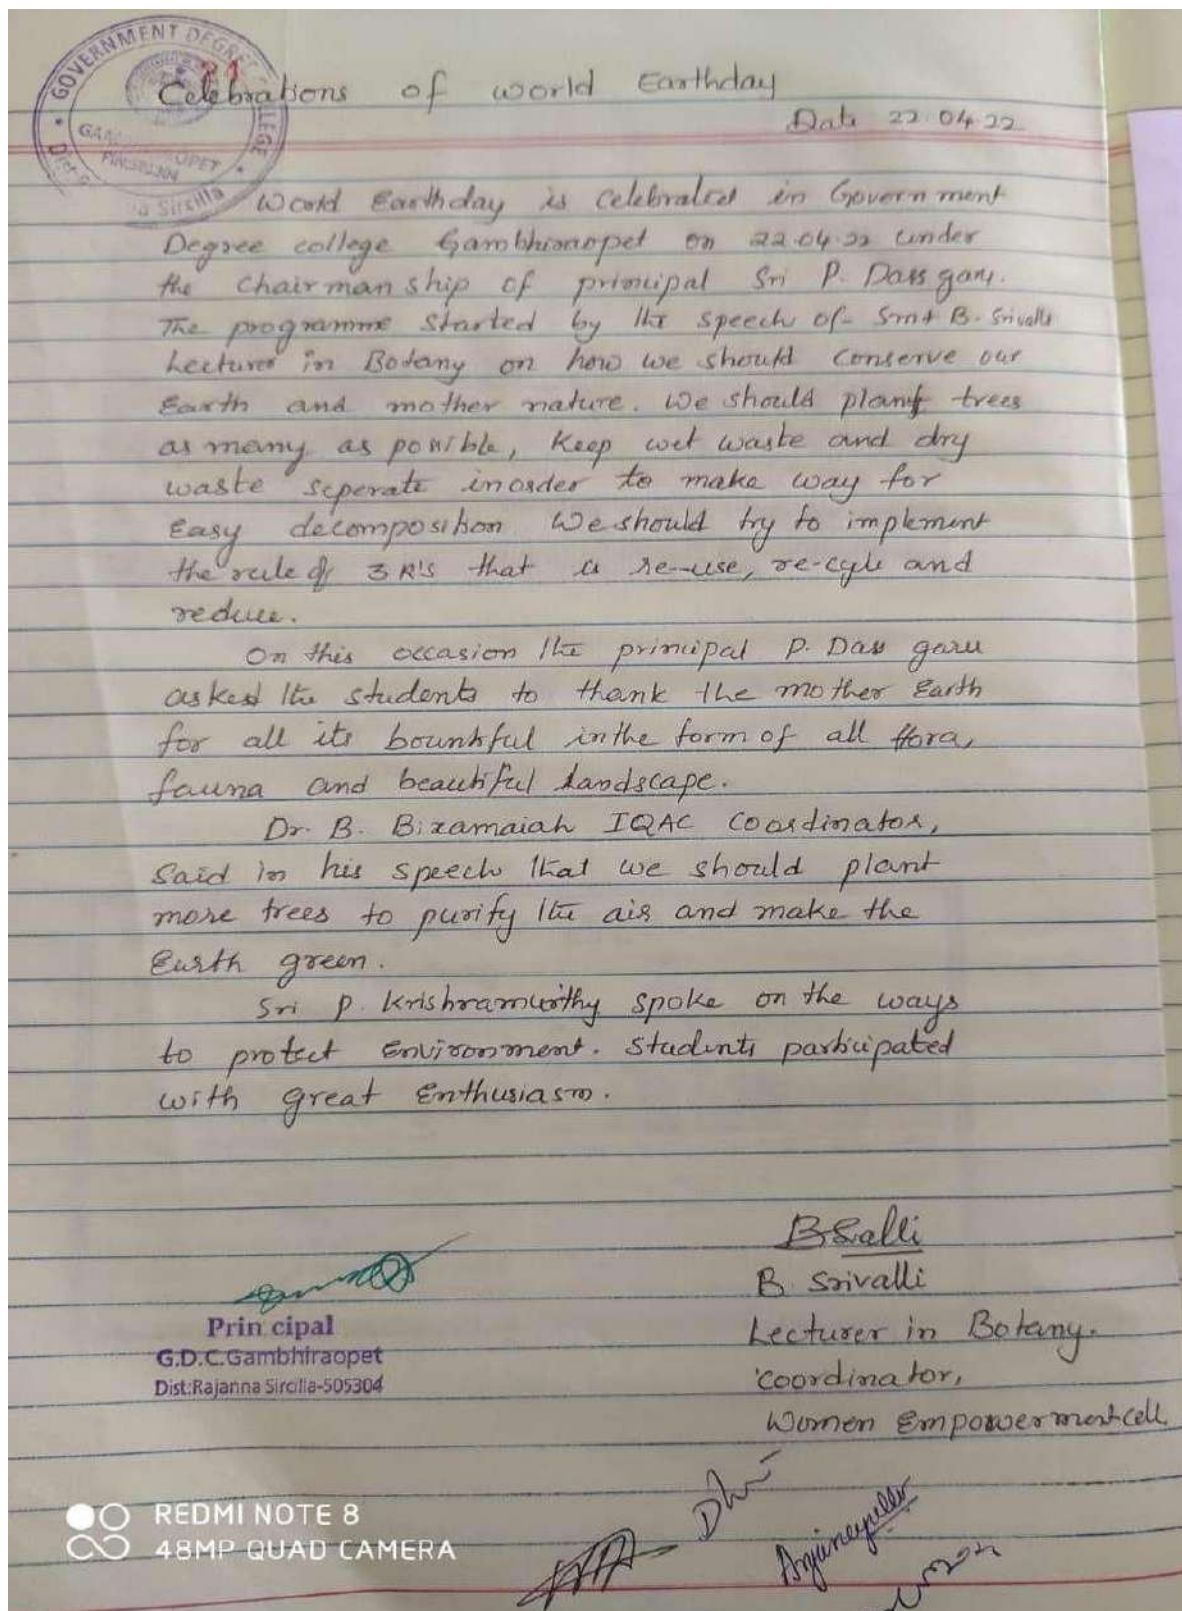 GOVERNMENT DEGREE COLLEGE
Celebrations of world Earthday
Date 22.04.22
World Earthday is celebrated in Government
Degree college Gambhiraopet on 22.04.22 under
the chairmanship of principal Sri P. Dass garu.
The programme started by the speech of Smt B. Srivalli
Lecturer in Botany on how we should conserve our
Earth and mother nature. We should plant trees
as many as possible, Keep wet waste and dry
waste seperate inorder to make way for
easy decomposition. We should try to implement
the rule of 3 R's that is re-use, re-cyle and
reduce.
On this occasion the principal P. Dass garu
asked the students to thank the mother Earth
for all its bountiful in the form of all flora,
fauna and beautiful landscape.
Dr. B. IQAC Coordinator,
Said in his speech that we should plant
more trees to purify the air and make the
Earth green.
Sri P. Krishnamurthy spoke on the ways
to protect Environment. Students participated
with great Enthusiasm.
B. Srivalli
Lecturer in Botany.
Coordinator,
Women Empowerment cell
Prin cipal
G.D.C.Gambhiraopet
Dist:Rajanna Sircilla-505304
REDMI NOTE 8
48MP QUAD CAMERA